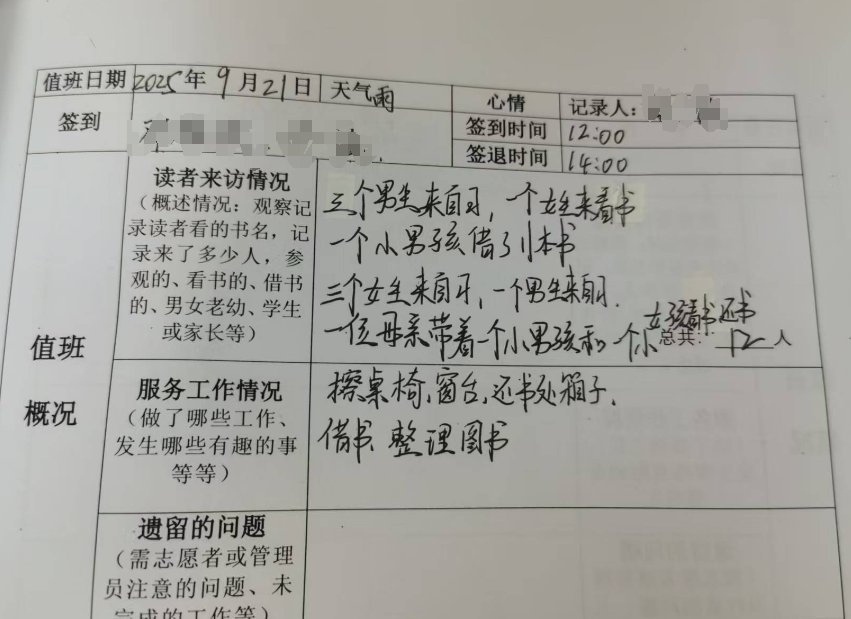 值班日期 2025年9月21日 天气雨 心情 记录人：
签到 签到时间 12:00
签退时间 14:00
值班概况
读者来访情况
（概述情况：观察记
录读者看的书名，记
录来了多少人，参
观的、看书的、借书
的、男女老幼、学生
或家长等）
三个男生来自习，一个女生来看书
一个小男孩借了1本书
三个女生来自习，一个男生来自习.
一位母亲带着一个小男孩和一个小女孩看书还书
总共：12人
服务工作情况
（做了哪些工作、
发生哪些有趣的事
等等）
擦桌椅，窗台，还书处箱子，
借书、整理图书
遗留的问题
（需志愿者或管理
员注意的问题、未
完成的工作等）